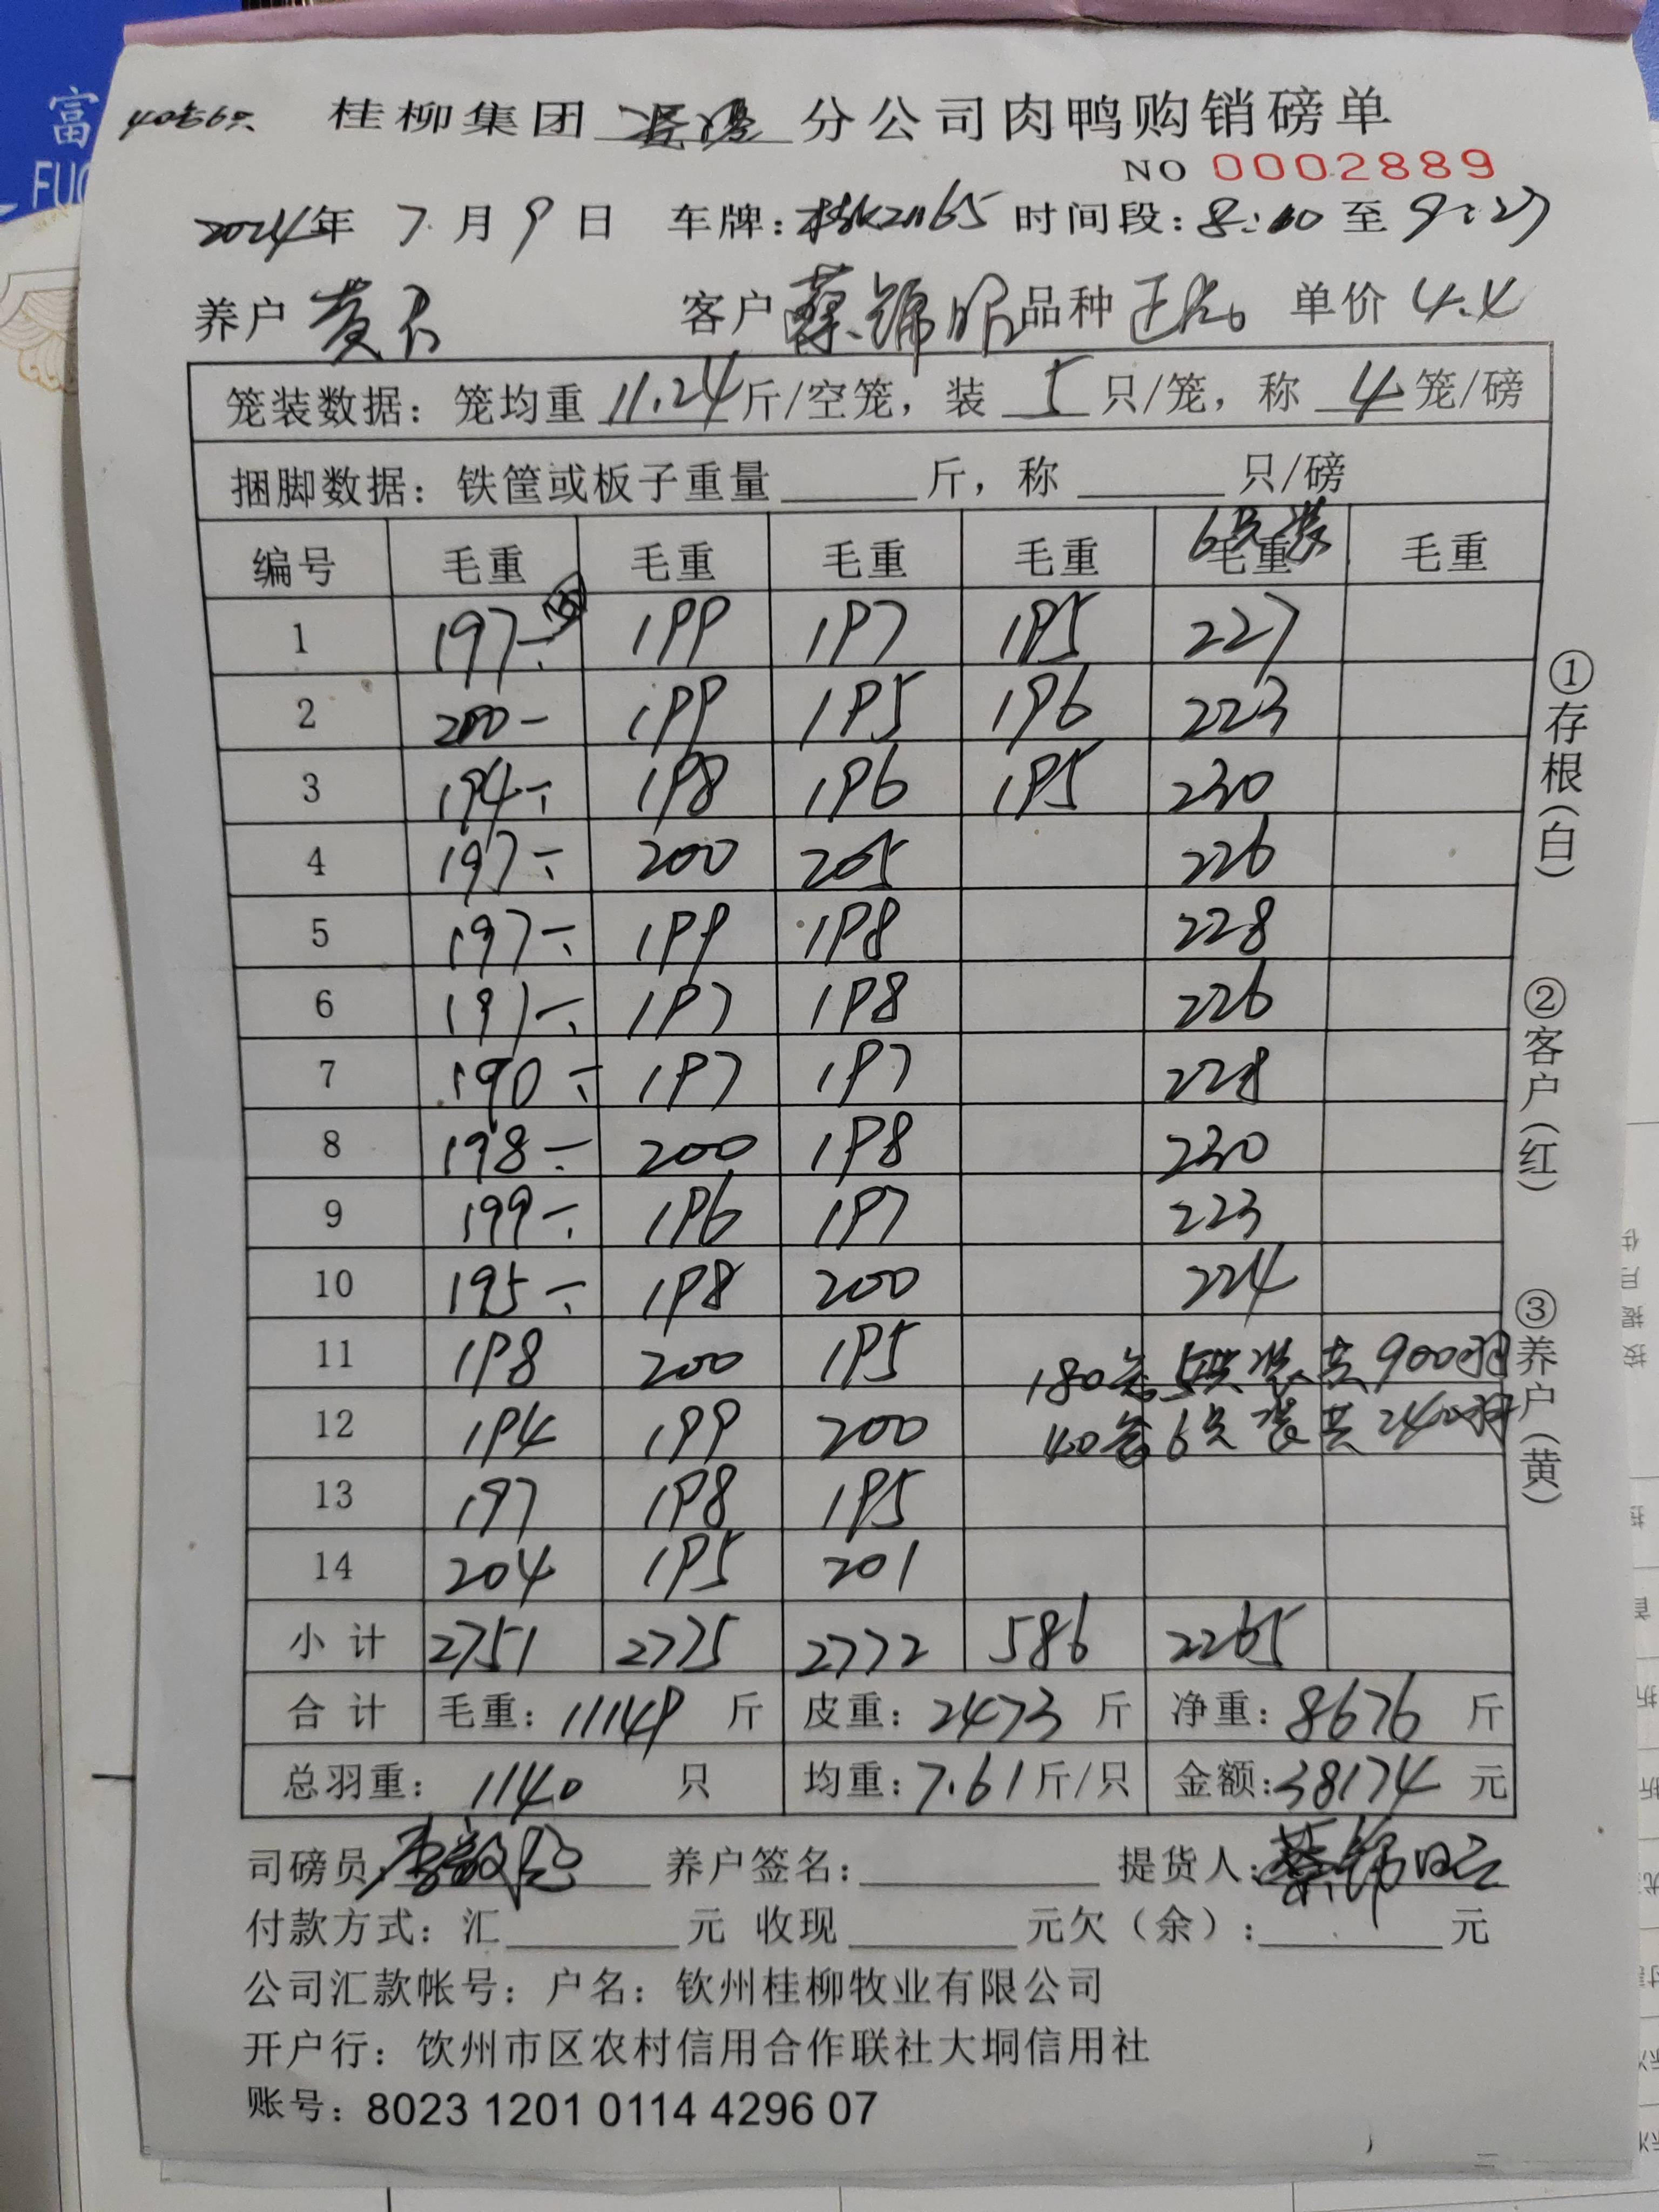 富
FUC
40笼6只 桂柳集团 分公司肉鸭购销磅单
NO 0002889
2024年 7月9日 车牌: 时间段: 8:10 至 9:27
养户 黄 客户 蔡锦昭 品种 单价 4.4
笼装数据: 笼均重 11.24 斤/空笼, 装 5 只/笼, 称 4 笼/磅
捆脚数据: 铁筐或板子重量 斤, 称 只/磅
6只装
编号 毛重 毛重 毛重 毛重 毛重 毛重
1 197 199 197 195 227
2 200 199 195 196 223
3 194 198 196 195 230
4 197 200 205 226
5 197 199 198 228
6 191 197 198 226
7 190 197 197 228
8 198 200 198 230
9 199 196 197 223
10 195 198 200 224
11 198 200 195 180笼 5只装 共900羽
12 194 199 200 40笼 6只装 共240羽
13 197 198 195
14 204 195 201
小计 2751 2775 2772 586 2265
合计 毛重: 11149 斤 皮重: 2473 斤 净重: 8676 斤
总羽重: 1140 只 均重: 7.61 斤/只 金额: 38174 元
司磅员: 养户签名: 提货人: 蔡锦昭
付款方式: 汇 元 收现 元欠(余): 元
公司汇款帐号: 户名: 钦州桂柳牧业有限公司
开户行: 钦州市区农村信用合作联社大垌信用社
账号: 8023 1201 0114 4296 07
①存根(白)
②客户(红)
③养户(黄)